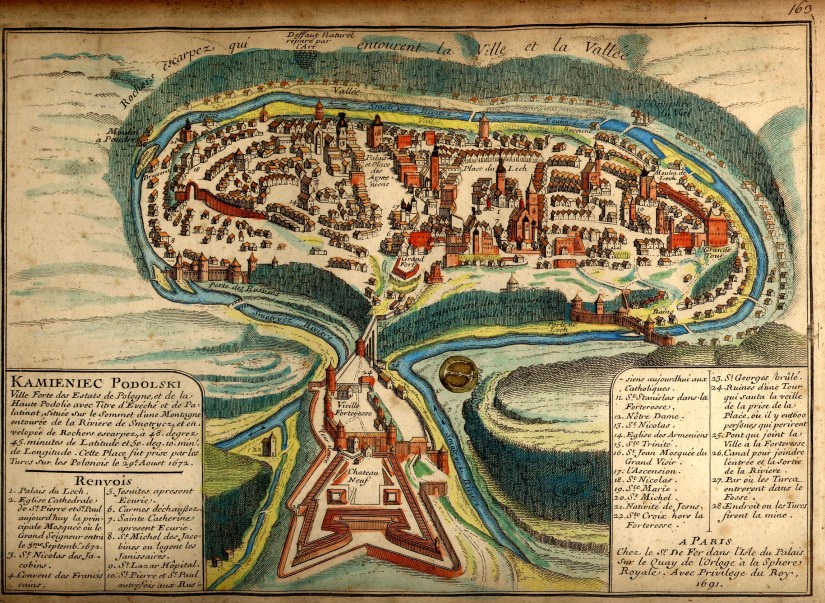 163
Deffaut Naturel
réparé par
l'Art
Rochers escarpez qui entourent la Ville et la Vallée
Vallée
Moulin
à Poudre
Palais
et Place
des
Arme
niens
Place du Lech
Moulin de
Lech
Grande
Tour
Grand
Fort
Porte des Rutiens
Smotrycz Riviere
Ruine
Porte du Lech
Vieille
Forteresse
Chateau
Neuf
KAMIENIEC PODOLSKI
Ville Forte des Estats de Pologne, et de la
Haute Podolie avec Titre d'Evêché et de Pa-
latinat, située sur le Sommet d'une Montagne
entourée de la Riviere de Smotrycz, et en-
velopée de Rochers escarpez, a 48. degrez
45. minutes de Latitude et 50. deg. 10. min.
de Longitude. Cette Place fut prise par les
Turcs sur les Polonois le 29. Aoust 1672.
Renvois
1. Palais du Lech.
2. Eglise Cathedrale
de St. Pierre et St. Paul
aujourd'huy la prin-
cipale Mosquée où le
Grand Seigneur entra
le 3me Septemb. 1672.
3. St. Nicolas des Ja-
cobins.
4. Convent des Francis
cains.
5. Jesuites, apresent
Ecurie.
6. Carmes déchaussez.
7. Sainte Catherine
apresent Ecurie.
8. St. Michel des Jaco-
bins ou logent les
Janissaires.
9. St. Lazar Hôpital.
10. St. Pierre et St. Paul
autrefois aux Rus-
siens aujourd'hui aux
Catholiques.
11. St. Stanislas dans la
Forteresse.
12. Nôtre Dame.
13. St. Nicolas.
14. Eglise des Armeniens
15. Ste. Trinité.
16. St. Jean Mosquée du
Grand Visir.
17. l'Ascension.
18. St. Nicolas.
19. Ste. Marie.
20. St. Michel.
21. Nativité de Jesus.
22. Ste. Croix hors la
Forteresse.
23. St. Georges brûlé.
24. Ruines d'une Tour
qui sauta la veille
de la prise de la
Place, où il y eut 800
persones qui perirent
25. Pont qui joint la
Ville a la Forteresse
26. Canal pour joindre
l'entrée et la Sortie
de la Riviere.
27. Par où les Turcs
entrerent dans le
Fossé.
28. Endroit ou les Turcs
firent la mine.
A PARIS
Chez le Sr. De Fer dans l'Isle du Palais
Sur le Quay de l'Orloge a la Sphere
Royale. Avec Privilege du Roy,
1691.